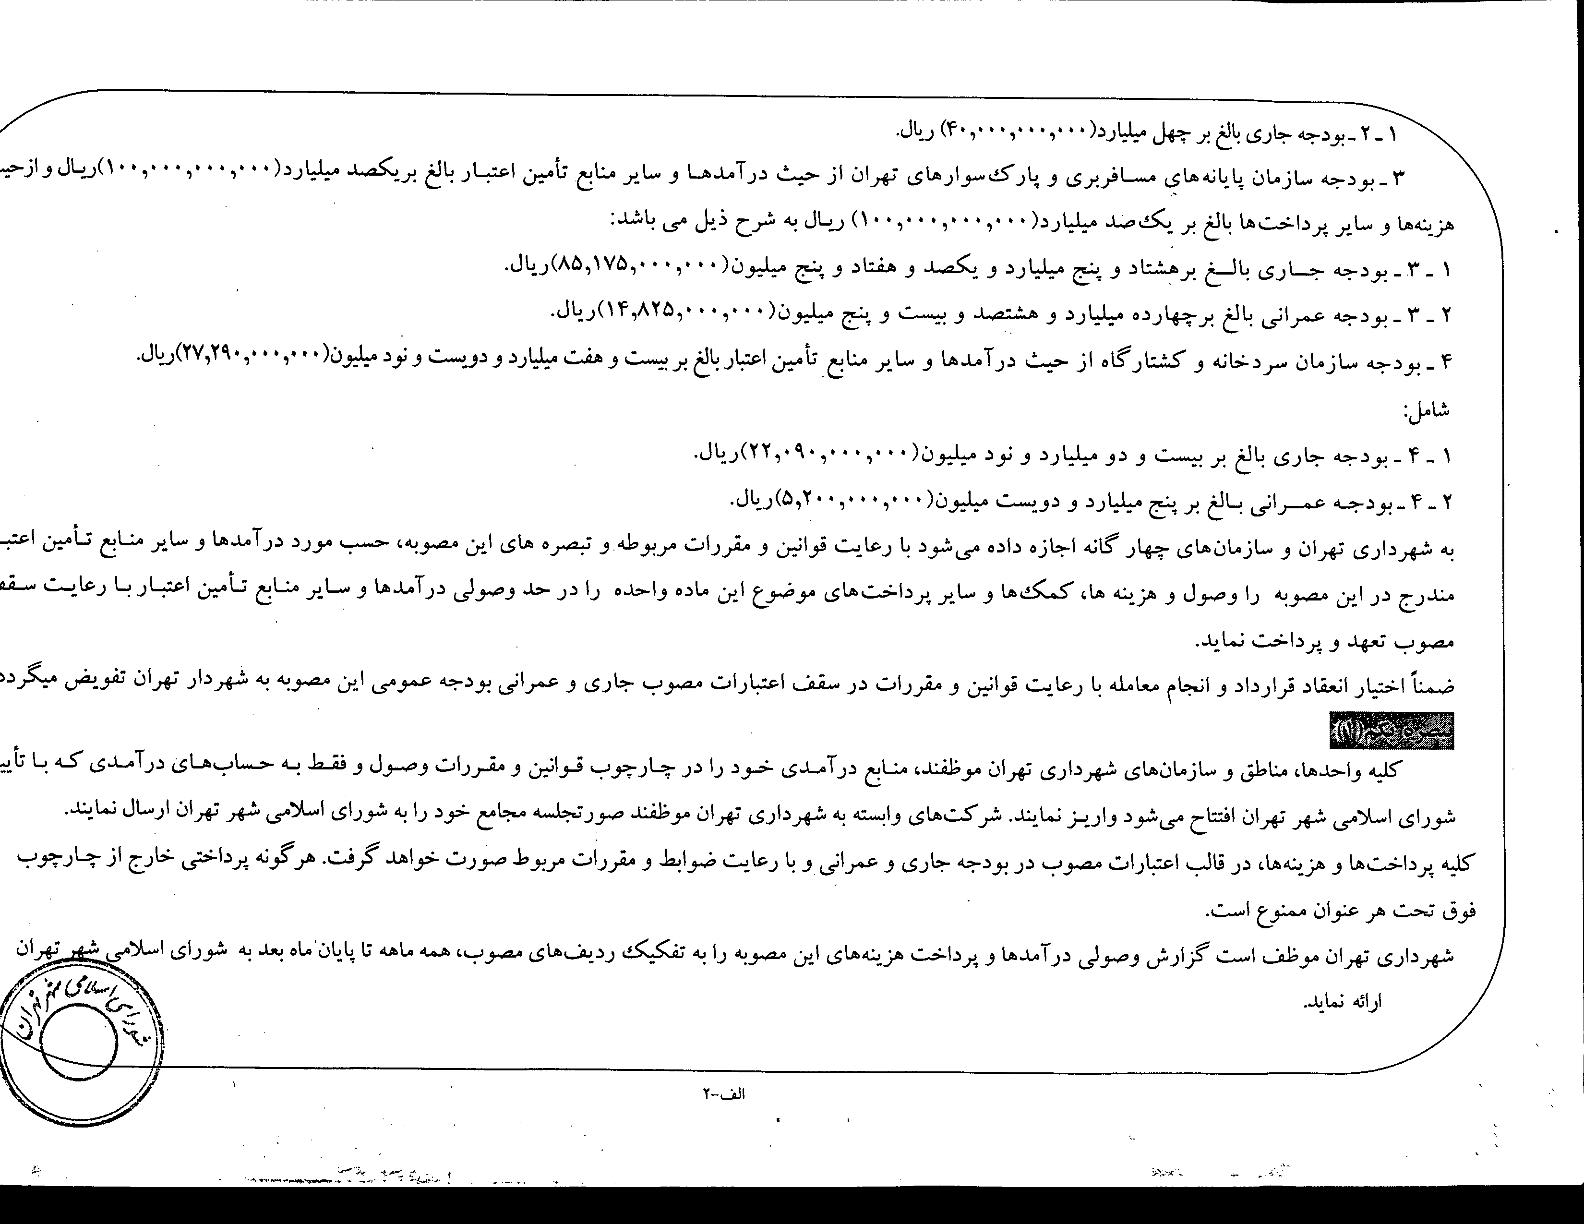 ۱ ـ ۲ ـ بودجه جاری بالغ بر چهل میلیارد(۴۰,۰۰۰,۰۰۰,۰۰۰) ریال.
۳ ـ بودجه سازمان پایانه‌های مسافربری و پارک‌سوارهای تهران از حیث درآمدها و سایر منابع تأمین اعتبار بالغ بریکصد میلیارد(۱۰۰,۰۰۰,۰۰۰,۰۰۰)ریال و از
هزینه‌ها و سایر پرداخت‌ها بالغ بر یک‌صد میلیارد(۱۰۰,۰۰۰,۰۰۰,۰۰۰) ریال به شرح ذیل می باشد:
۱ ـ ۳ ـ بودجه جاری بالغ برهشتاد و پنج میلیارد و یکصد و هفتاد و پنج میلیون(۸۵,۱۷۵,۰۰۰,۰۰۰)ریال.
۲ ـ ۳ ـ بودجه عمرانی بالغ برچهارده میلیارد و هشتصد و بیست و پنج میلیون(۱۴,۸۲۵,۰۰۰,۰۰۰)ریال.
۴ ـ بودجه سازمان سردخانه و کشتارگاه از حیث درآمدها و سایر منابع تأمین اعتبار بالغ بر بیست و هفت میلیارد و دویست و نود میلیون(۲۷,۲۹۰,۰۰۰,۰۰۰)ریال.
شامل:
۱ ـ ۴ ـ بودجه جاری بالغ بر بیست و دو میلیارد و نود میلیون(۲۲,۰۹۰,۰۰۰,۰۰۰)ریال.
۲ ـ ۴ ـ بودجه عمرانی بالغ بر پنج میلیارد و دویست میلیون(۵,۲۰۰,۰۰۰,۰۰۰)ریال.
به شهرداری تهران و سازمان‌های چهار گانه اجازه داده می‌شود با رعایت قوانین و مقررات مربوطه و تبصره های این مصوبه، حسب مورد درآمدها و سایر منابع تأمین
مندرج در این مصوبه را وصول و هزینه ها، کمک‌ها و سایر پرداخت‌های موضوع این ماده واحده را در حد وصولی درآمدها و سایر منابع تأمین اعتبار با رعایت سقف
مصوب تعهد و پرداخت نماید.
ضمناً اختیار انعقاد قرارداد و انجام معامله با رعایت قوانین و مقررات در سقف اعتبارات مصوب جاری و عمرانی بودجه عمومی این مصوبه به شهردار تهران تفویض میگردد
تبصره یکم(۱)
کلیه واحدها، مناطق و سازمان‌های شهرداری تهران موظفند، منابع درآمدی خود را در چارچوب قوانین و مقررات وصول و فقط به حساب‌های درآمدی که با
شورای اسلامی شهر تهران افتتاح می‌شود واریز نمایند. شرکت‌های وابسته به شهرداری تهران موظفند صورتجلسه مجامع خود را به شورای اسلامی شهر تهران ارسال نمایند.
کلیه پرداخت‌ها و هزینه‌ها، در قالب اعتبارات مصوب در بودجه جاری و عمرانی و با رعایت ضوابط و مقررات مربوط صورت خواهد گرفت. هرگونه پرداختی خارج از چارچوب
فوق تحت هر عنوان ممنوع است.
شهرداری تهران موظف است گزارش وصولی درآمدها و پرداخت هزینه‌های این مصوبه را به تفکیک ردیف‌های مصوب، همه ماهه تا پایان ماه بعد به شورای اسلامی شهر تهران
ارائه نماید.
شورای اسلامی شهر تهران
الف-۲